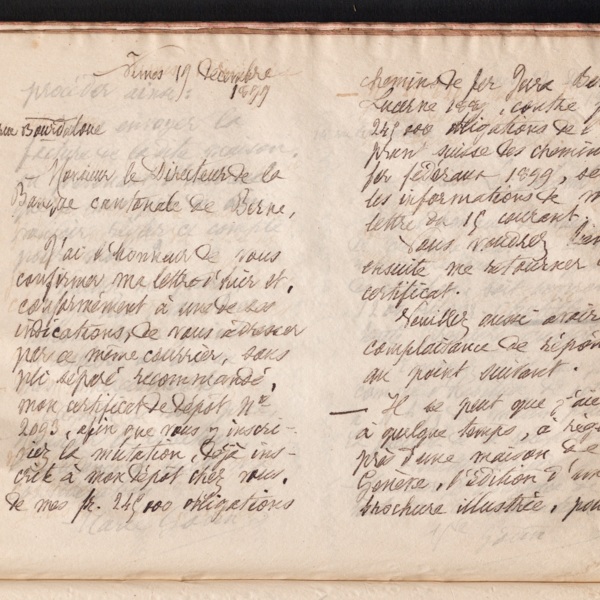 Nîmes 19 décembre
1899
rue Bourdaloue
Monsieur le Directeur de la
Banque cantonale de Berne,
J'ai l'honneur de vous
confirmer ma lettre d'hier et,
conformément à une de ses
indications, de vous adresser
par ce même courrier, sous
pli séparé recommandé,
mon certificat de dépôt No
2093, afin que vous y inscri-
viez la mutation, déjà ins-
crite à mon dépôt chez vous,
de mes fr. 245,000 obligations
chemin de fer Jura
Lucerne 1889, contre
245,000 obligations de
suisse des chemins
fer fédéraux 1899,
les informations de
lettre du 15 courant.
Vous voudrez bien
ensuite me retourner
certificat.
Veuillez aussi avoir
complaisance de
au point suivant.
— Il se peut que j'aie
à quelque temps, à
près d'une maison de
Genève, l'édition d'un
brochure illustrée,